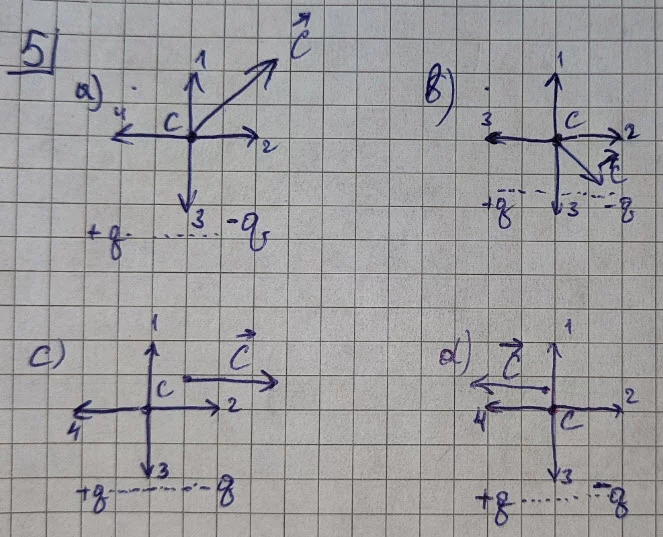 5
a)
1
C⃗
4
C
2
3
+q -q
b)
1
3
C
2
C⃗
+q
3
-q
c)
1
C⃗
C
4
2
3
+q -q
d)
1
C⃗
4
C
2
3
+q -q